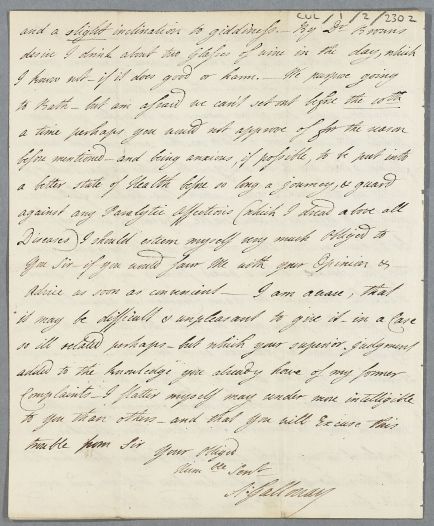 CUL/1/2/2302
and a slight inclination to giddiness – By Dr Browns
desire I drink about two Glasses of wine in the day, which
I know not – if it does good or harm. – We purpose going
to Bath – but am afraid we can't set out before the 10th
a time perhaps you would not approve of for the reason
before mentioned – and being anxious, if possible, to be put into
a better state of Health before so long a Journey, & guard
against any Paralytic Affections (which I dread above all
Diseases) I should esteem myself very much Obliged to
You Sir – if you would favr Me with your Opinion &
Advice as soon as convenient – I am aware, that
it may be difficult & unpleasant to give it – in a Case
so ill related perhaps – but which your superior Judgment
added to the Knowledge you already have of my former
Complaints – I flatter myself may render more intelligible
to you than others – and that you will Excuse this
trouble from Sir
Your Obliged
Hum ble Servt
Galloway